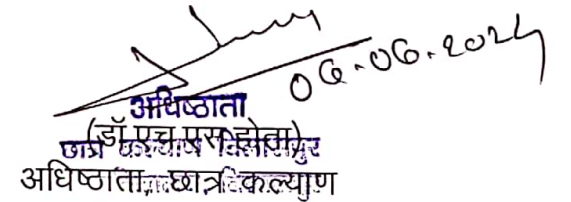 06.06.2024
अधिष्ठाता
(डॉ.एच.एस.होता)
छात्र कल्याण बिलासपुर
अधिष्ठाता, छात्र कल्याण